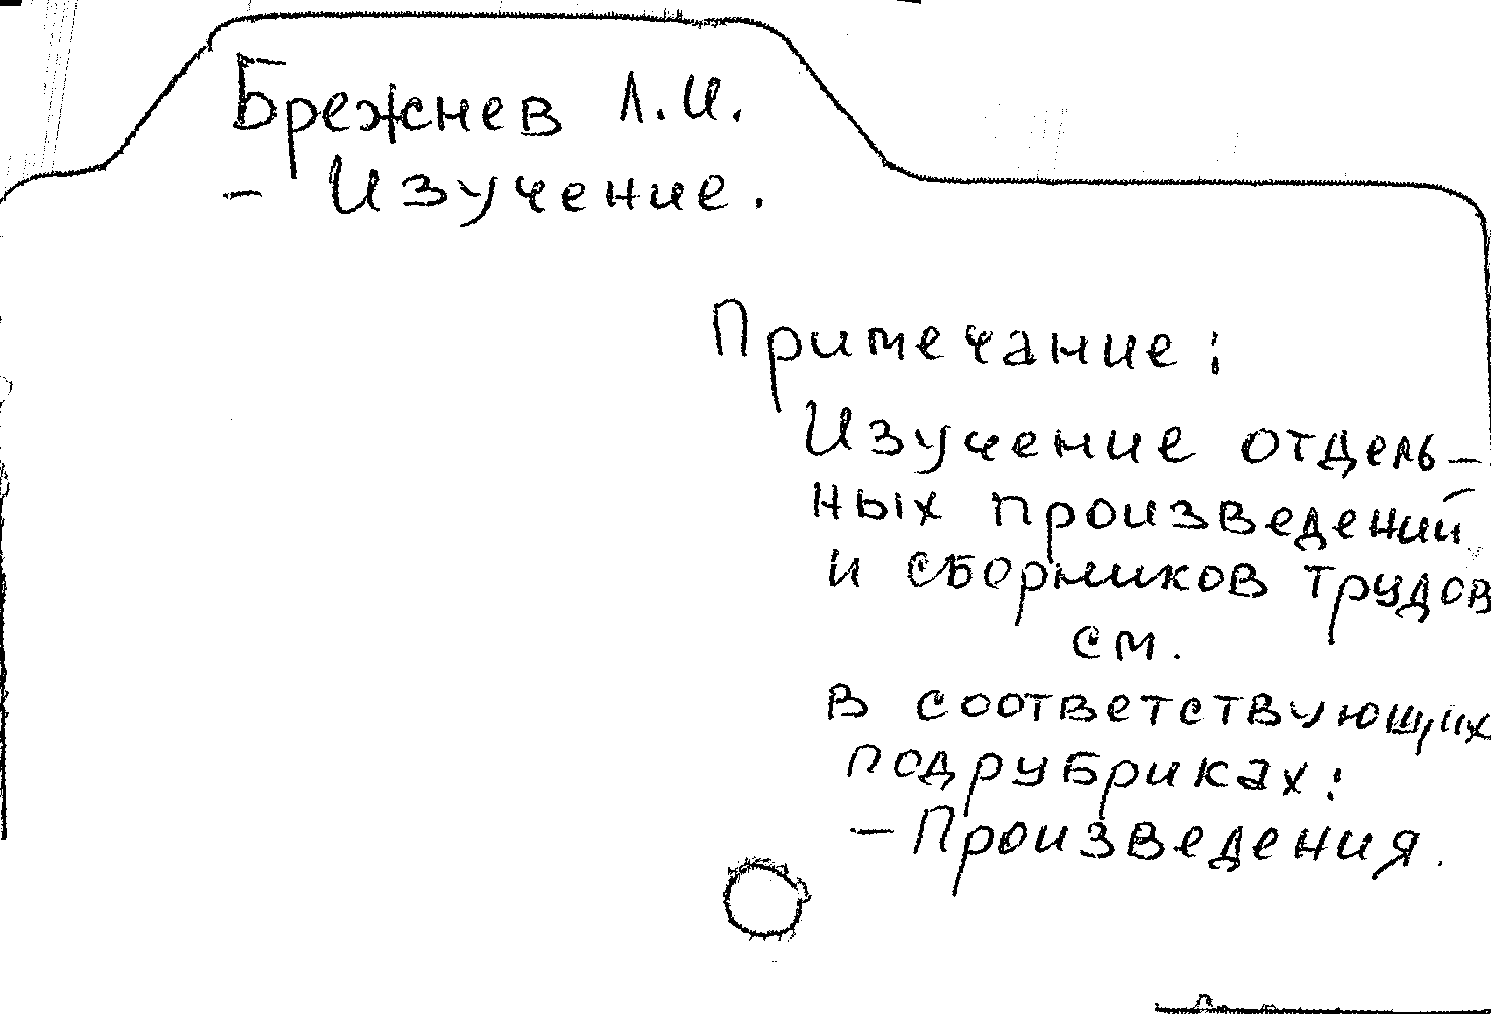 Брежнев Л.И.
- Изучение.
Примечание:
Изучение отдель-
ных произведений
и сборников трудов
см.
в соответствующих
подрубриках:
- Произведения.